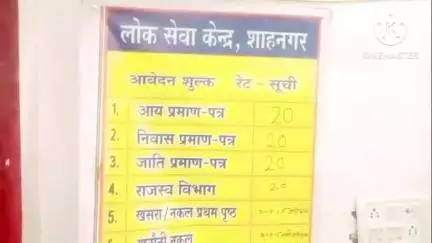 लोक सेवा केन्द्र, शाहनगर
आवेदन शुल्क रेट - सूची
1. आय प्रमाण-पत्र 20
2. निवास प्रमाण-पत्र 20
3. जाति प्रमाण-पत्र 20
4. राजस्व विभाग 20
5. खसरा/नकल प्रथम पृष्ठ
KINEMASTER